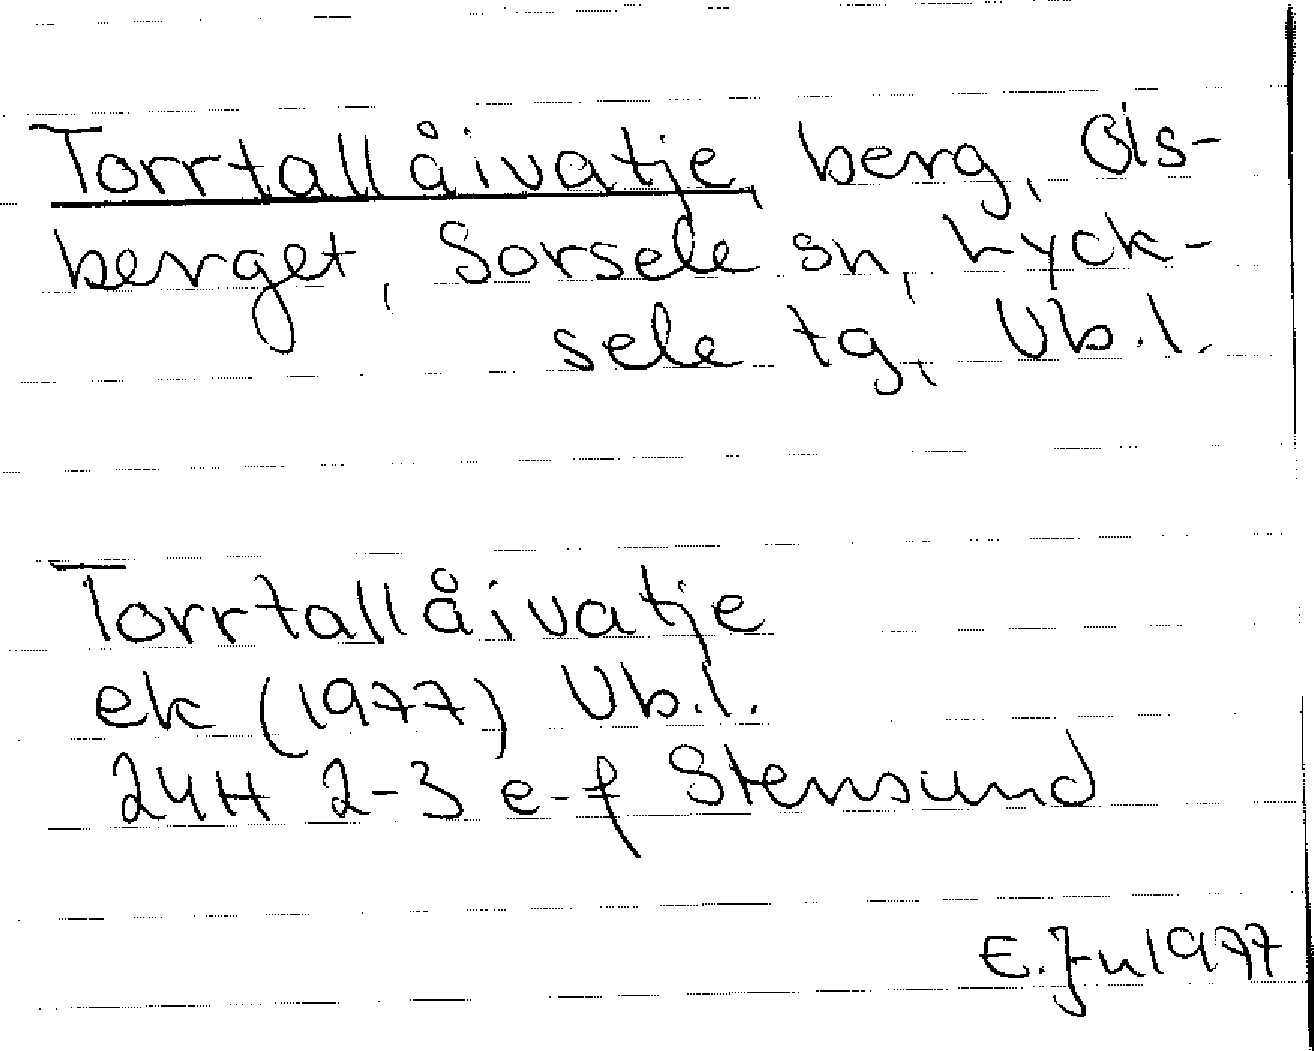 Torrtallåivatje, berg, Ols-
berget, Sorsele sn, Lyck-
sele tg, Vb.l.
Torrtallåivatje
ek (1977) Vb.l.
24H 2-3 e-f Stensund
E. Ju 1977